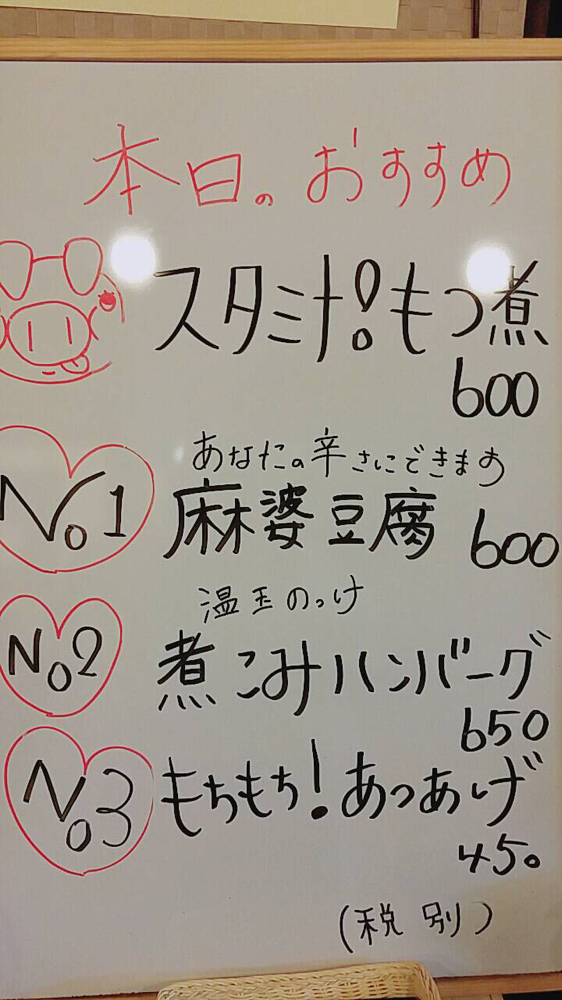 本日のおすすめ
スタミ汁!もつ煮
600
No1
あなたの辛さにできます
麻婆豆腐 600
No2
温玉のっけ
煮こみハンバーグ
650
No3
もちもち!あつあげ
450
(税別)